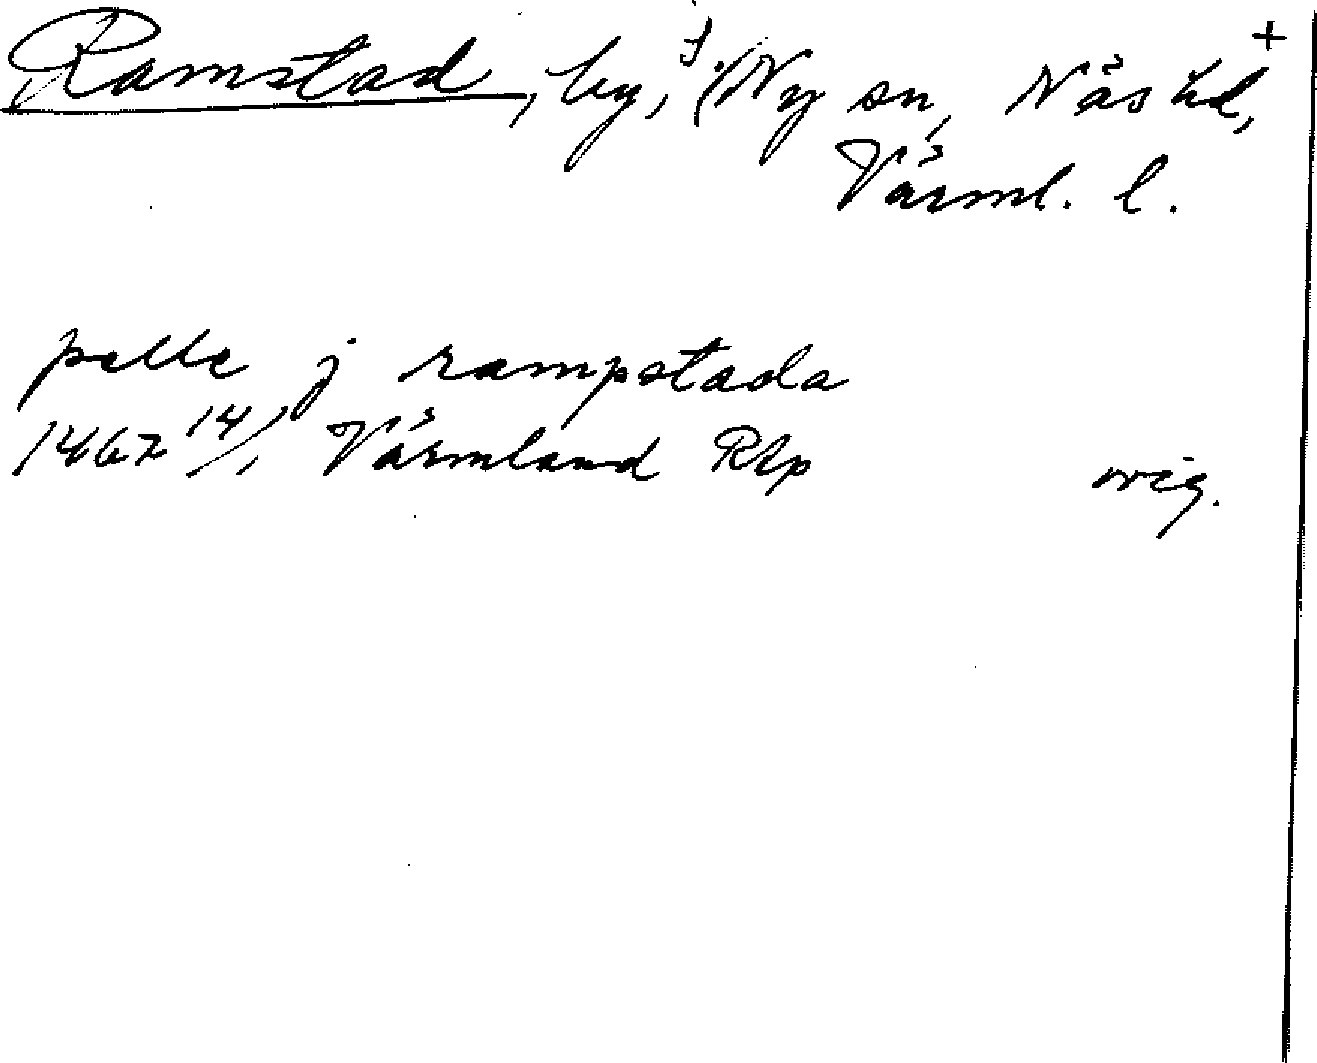 Ramstad, by, f. (Ny sn, Näs hd, +
Värml. l.
pelle j rampstada
1467 14/1 Värmland RAp orig.